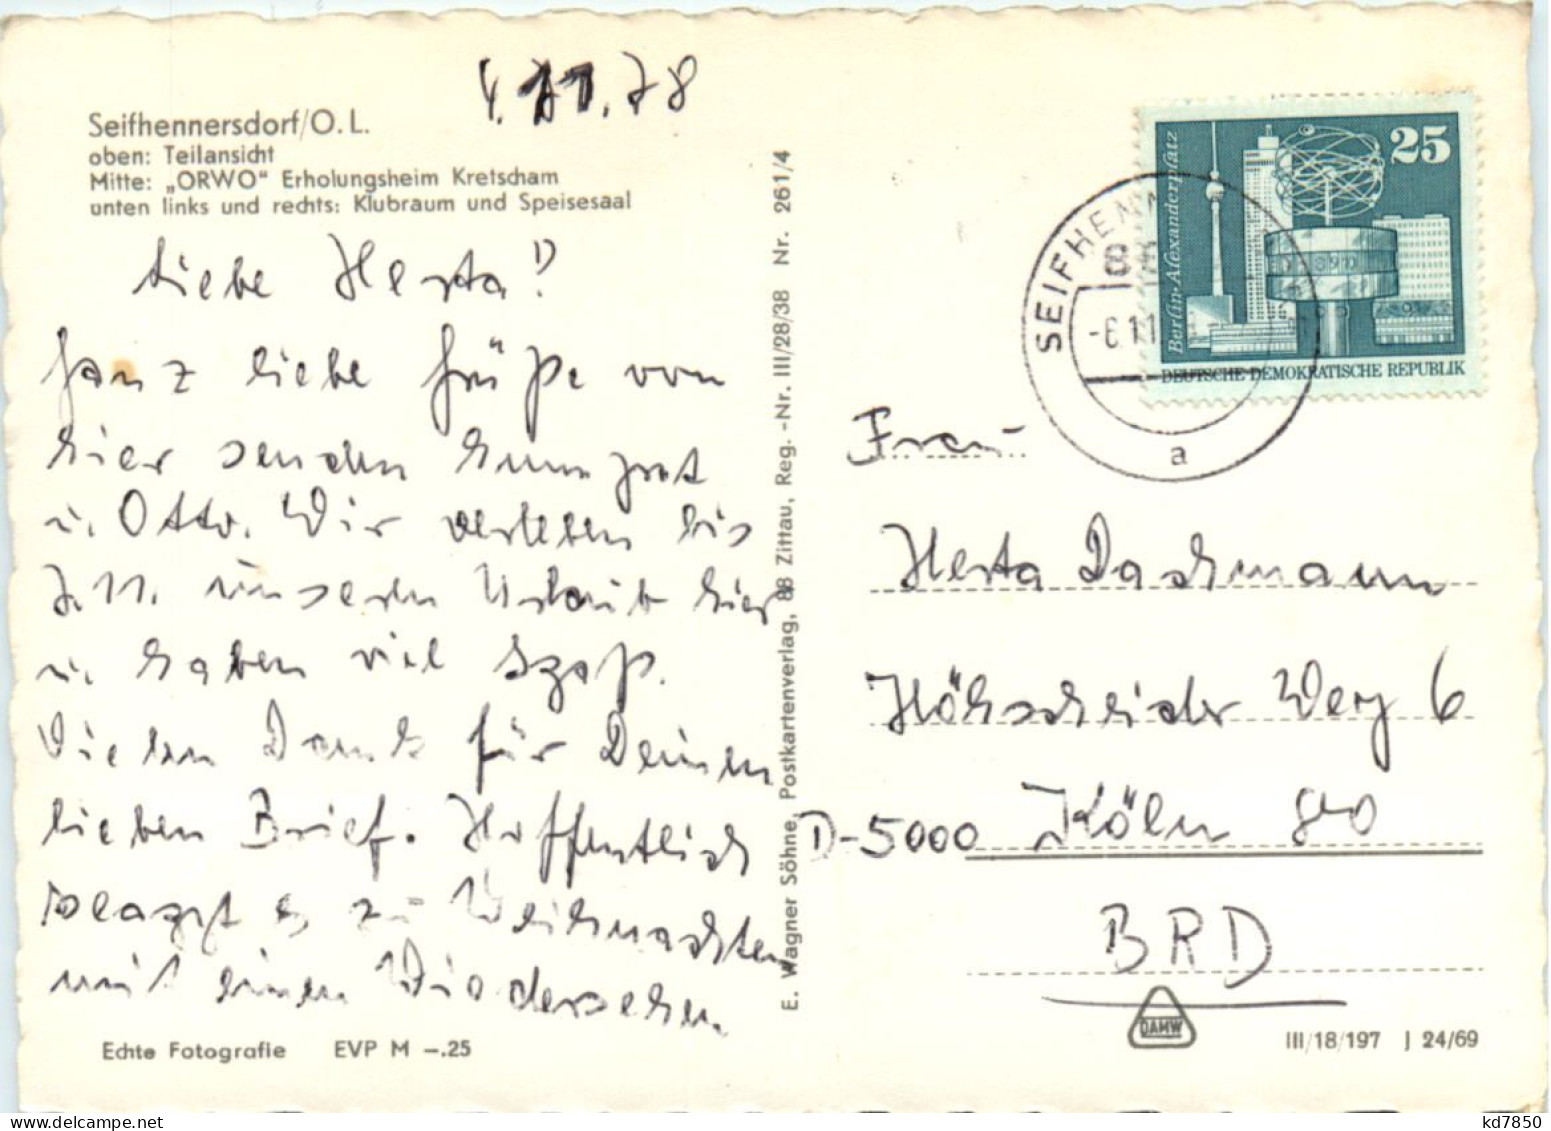 4.11.78
Seifhennersdorf/O.L.
oben: Teilansicht
Mitte: „ORWO" Erholungsheim Kretscham
unten links und rechts: Klubraum und Speisesaal
Liebe Herta!
Ganz liebe Grüße von
hier senden
u. Otto. Wir verleben bis
7.11. unseren Urlaub hier
u. haben viel Spaß.
Vielen Dank für Deinen
lieben Brief. Hoffentlich
klappt es zu Weihnachten
mit einem Wiedersehen.
Echte Fotografie EVP M -.25
E. Wagner Söhne, Postkartenverlag, 88 Zittau, Reg.-Nr. III/28/38 Nr. 261/4
25
Berlin-Alexanderplatz
DEUTSCHE DEMOKRATISCHE REPUBLIK
-6.11
a
Frau
Herta Dachmann
Höhscheider Weg 6
D-5000 Köln 80
BRD
DAMW
III/18/197 J 24/69
kd7850